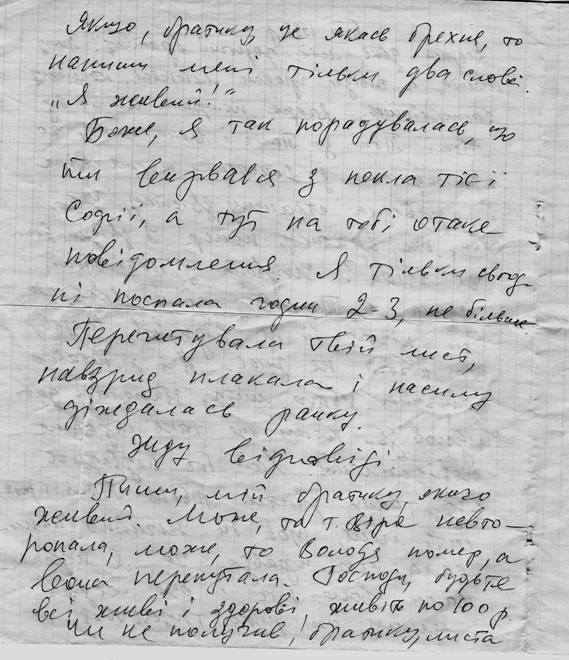 Якщо, братику, це якась брехня, то
напиши мені тільки два слова.
„Я живий!“
Боже, я так порадувалась, що
ти вирвався з пекла тієї
Софії, а тут на тобі отаке
повідомлення. Я тільки сьогод-
ні поспала годин 2-3, не більше.
Перечитувала твій лист,
навзрид плакала і насилу
діждалась ранку.
Жду відповіді.
Пиши, мій братику, якщо
живий. Може, то т. Віра невто-
ропала, може, то Володя помер, а
вона перепутала. Господи, будьте
всі живі і здорові живіть по 100 р.
Чи не получив, братику, листа